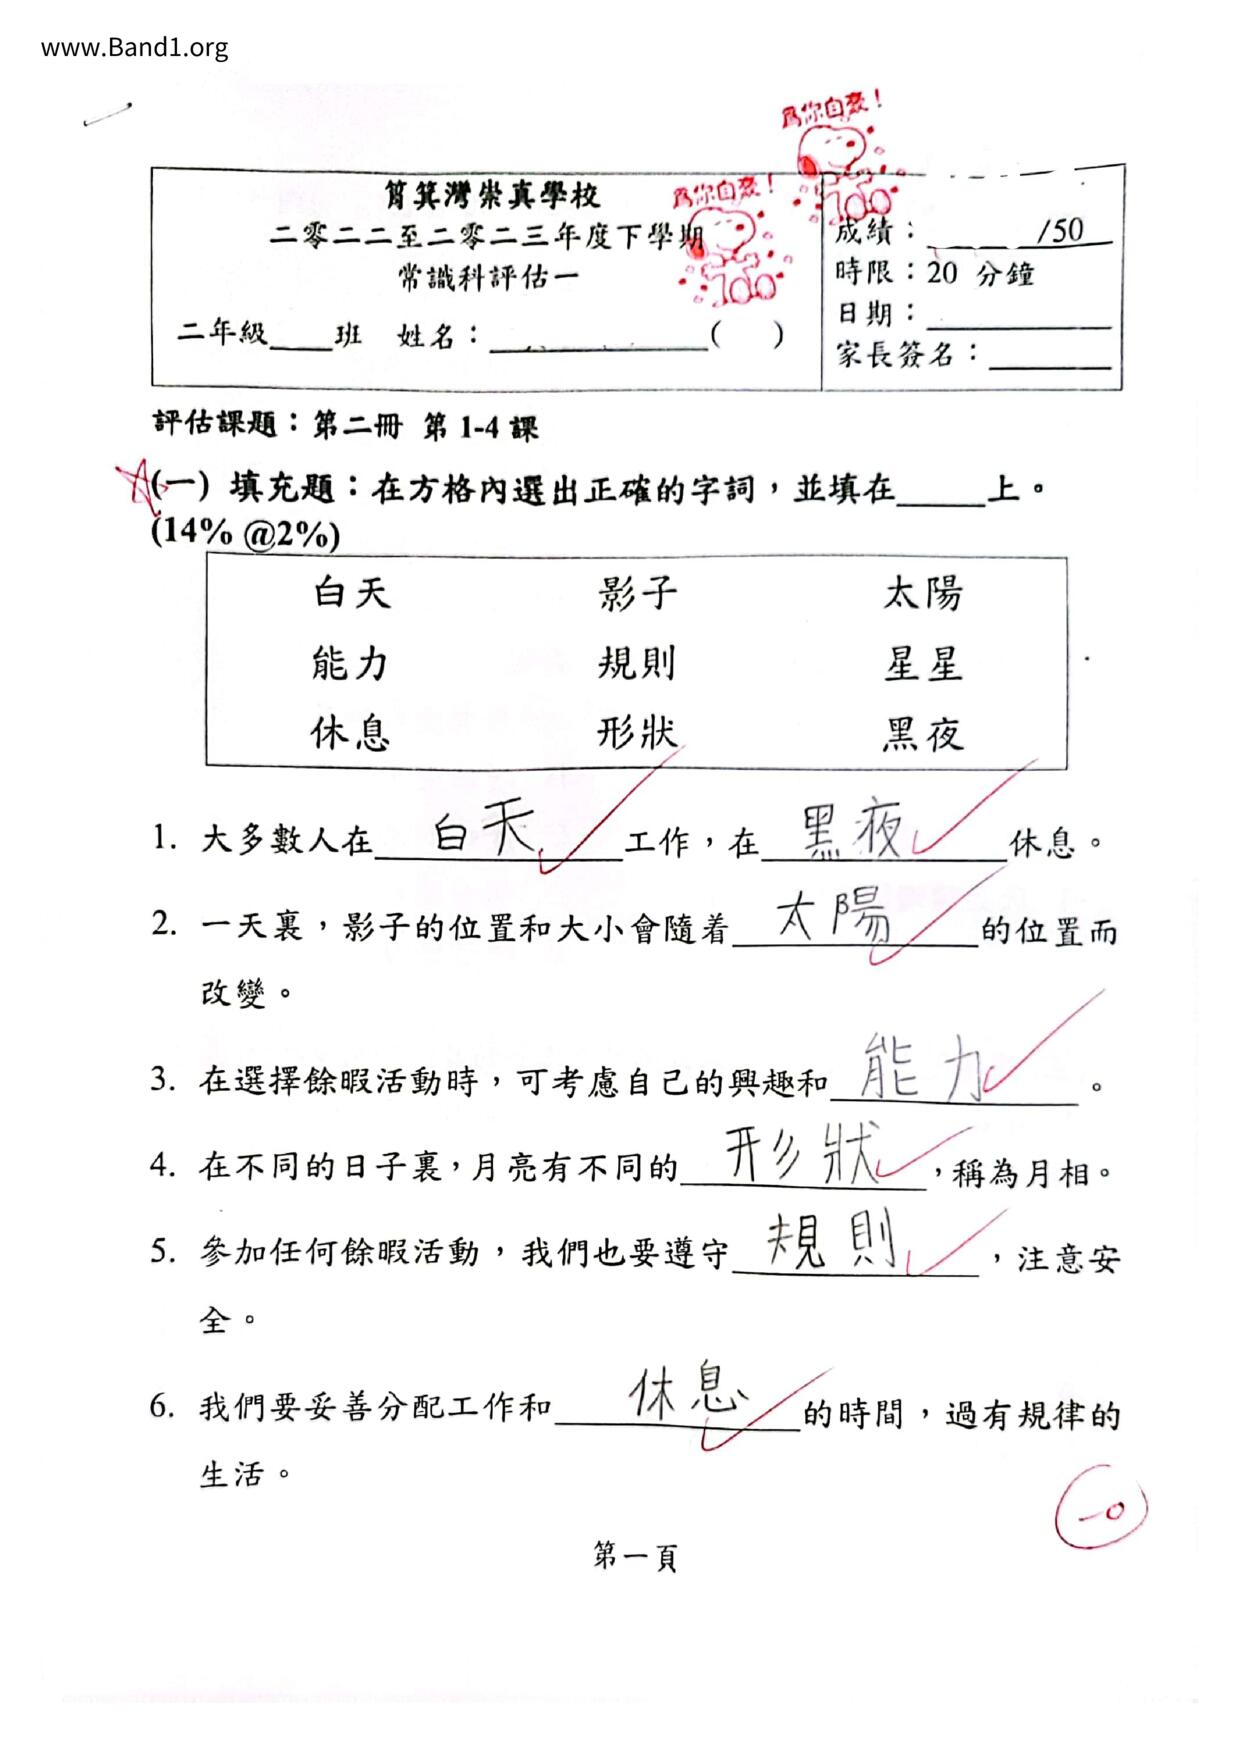 www.Band1.org
為你自豪！
為你自豪！
100
100
筲箕灣崇真學校
二零二二至二零二三年度下學期
常識科評估一
二年級____班 姓名：______________( )
成績：________/50
時限：20 分鐘
日期：____________
家長簽名：________
評估課題：第二冊 第 1-4 課
(一) 填充題：在方格內選出正確的字詞，並填在_____上。
(14% @2%)
白天 影子 太陽
能力 規則 星星
休息 形狀 黑夜
1. 大多數人在白天工作，在黑夜休息。
2. 一天裏，影子的位置和大小會隨着太陽的位置而
改變。
3. 在選擇餘暇活動時，可考慮自己的興趣和能力。
4. 在不同的日子裏，月亮有不同的形狀，稱為月相。
5. 參加任何餘暇活動，我們也要遵守規則，注意安
全。
6. 我們要妥善分配工作和休息的時間，過有規律的
生活。
-0
第一頁